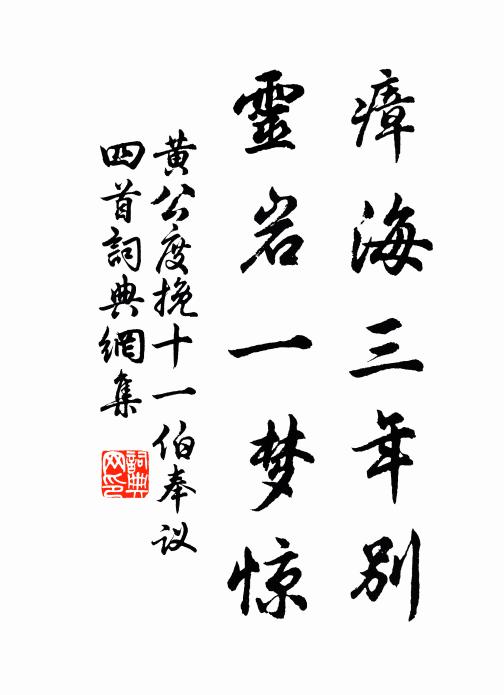 瘴海三年别
靈岩一梦惊
黄公度挽十一伯奉议
四首詞典網集
詞典
网印